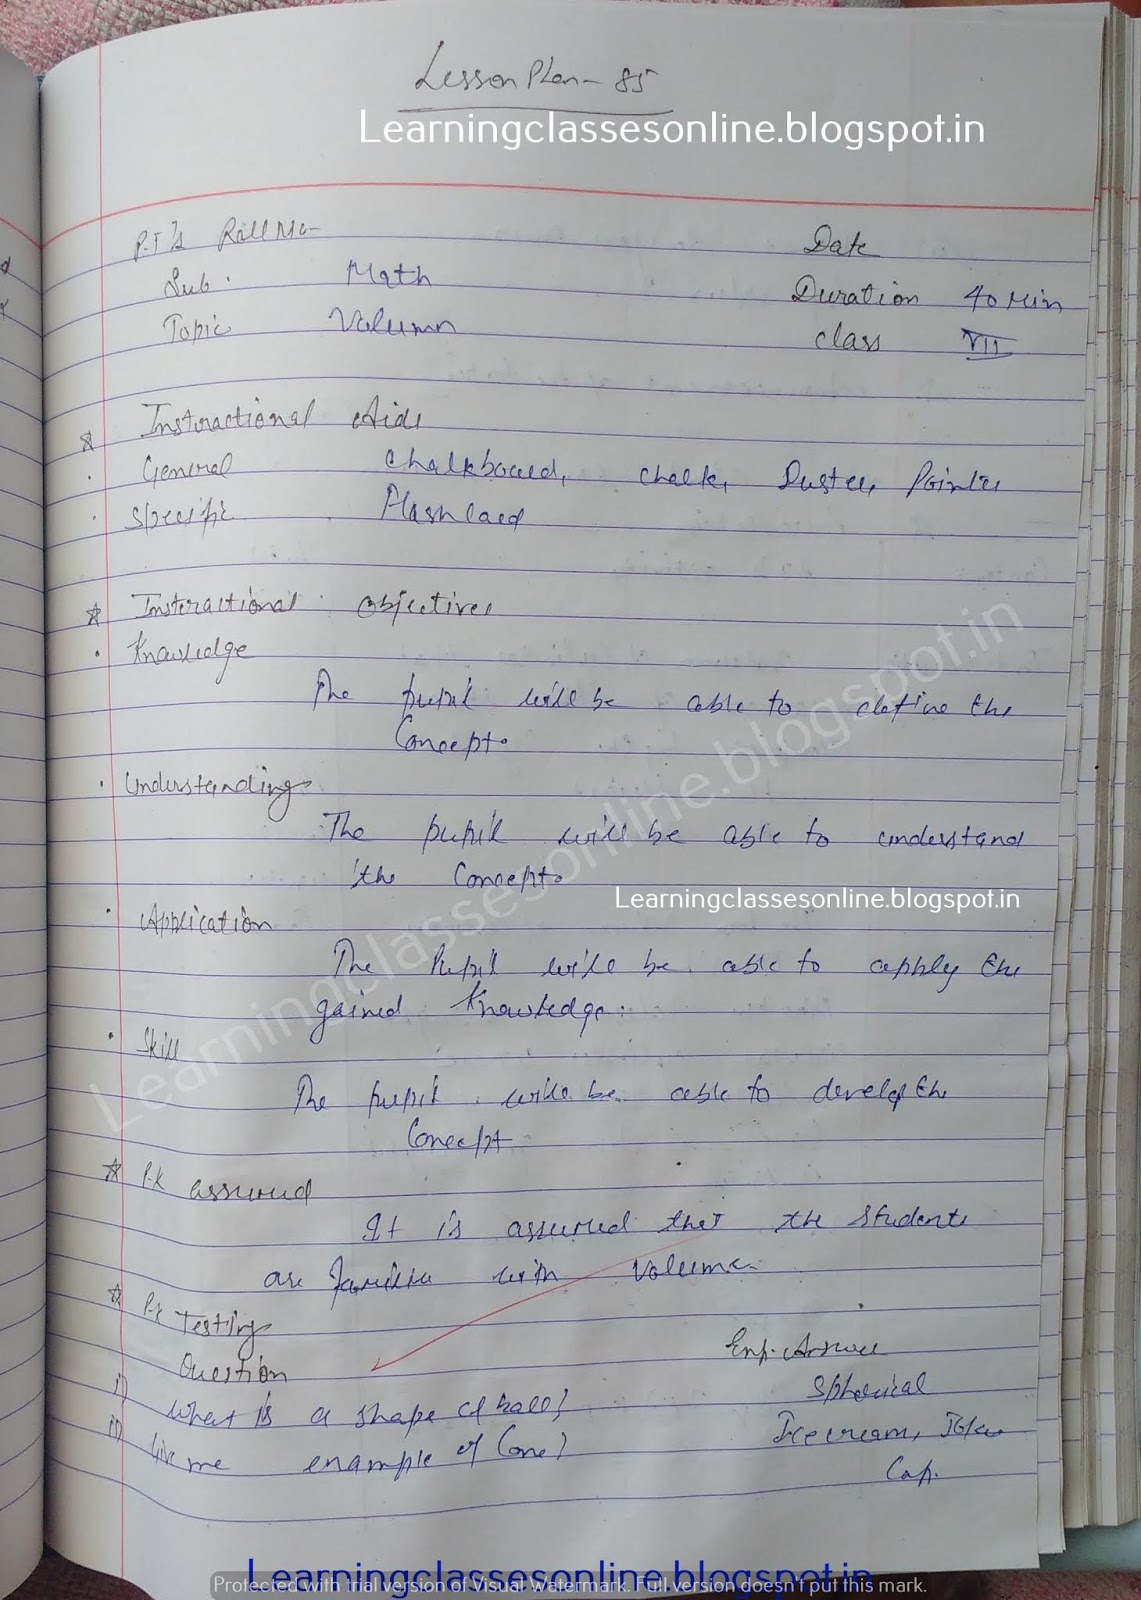 Lesson Plan - 85
Learningclassesonline.blogspot.in
P.T's Roll No - Date
Sub. Math Duration 40 Min
Topic Volumn class VII
☆ Instructional Aids
· General Chalkboard, chalk, Duster, Pointer
· Specific Flashcard
☆ Instructional objectives
· Knowledge
The pupil will be able to define the
Concept.
· Understanding
The pupil will be able to understand
the Concept.
Learningclassesonline.blogspot.in
Learningclassesonline.blogspot.in
· Application
The Pupil will be able to apply the
gained Knowledge.
· Skill
The pupil will be able to develop the
Concept
☆ P.K assumed
It is assumed that the students
are familiar with volume.
☆ P.K Testing
Question Exp. Answer
i) What is a shape of ball? Spherical
ii) Give me example of Cone? Icecream,
Cap.
Learningclassesonline.blogspot.in
Protected with trial version of Visual Watermark. Full version doesn't put this mark.